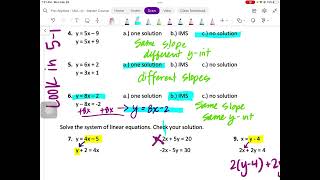 4. y = 5x − 9 a.) one solution b.) IMS c.) no solution
y = 5x + 9
Same slope
different y-int
5. y = 6x + 2 a.) one solution b.) IMS c.) no solution
y = 3x + 1
different slopes
6. y = 8x − 2 a.) one solution b.) IMS c.) no solution
y − 8x = −2
+8x +8x → y = 8x − 2
Same slope
same y-int
Look in 5-1
Solve the system of linear equations. Check your solution.
7. y = 4x − 5 8. 2x + 5y = 20 9. x = y − 4
y + 2 = 4x −2x − 5y = 30 2x + 2y = 24
2(y−4) + 2y